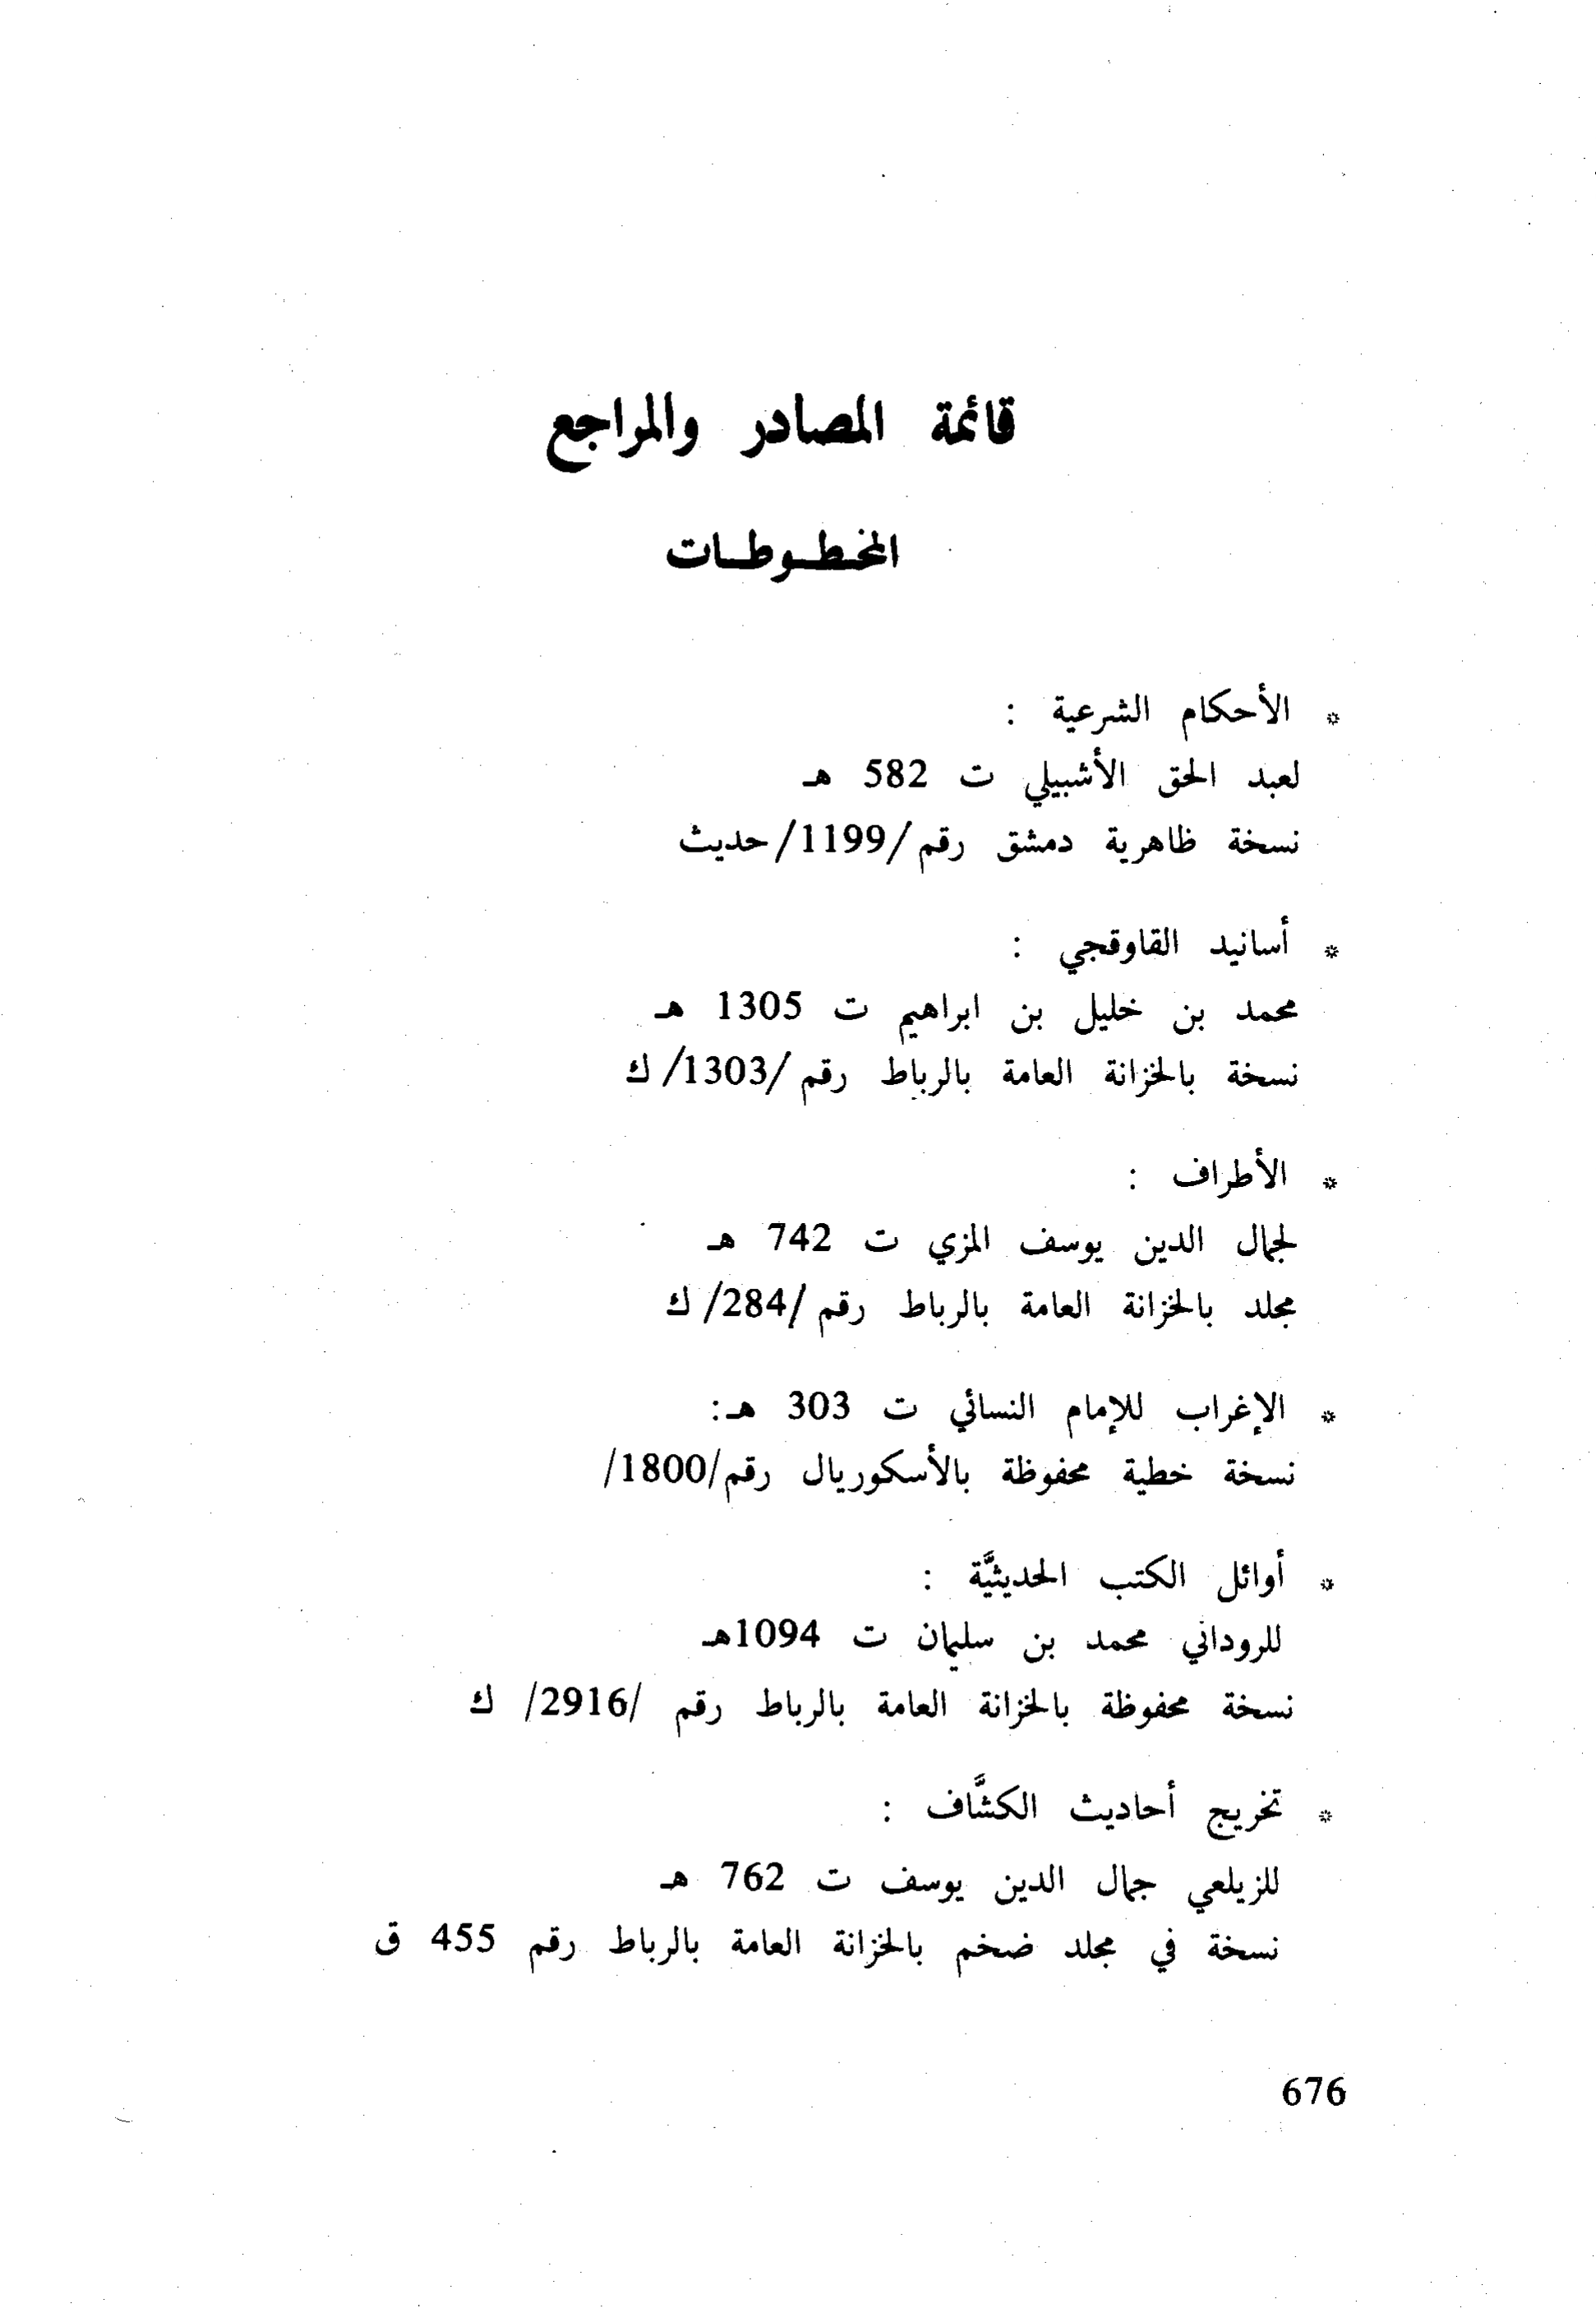 قائمة المصادر والمراجع
المخطـوطـات
* الأحكام الشرعية :
لعبد الحق الأشبيلي ت 582 هـ
نسخة ظاهرية دمشق رقم/1199/حديث
* أسانيد القاوقجي :
محمد بن خليل بن ابراهيم ت 1305 هـ
نسخة بالخزانة العامة بالرباط رقم/1303/ك
* الأطراف :
لجمال الدين يوسف المزي ت 742 هـ
مجلد بالخزانة العامة بالرباط رقم/284/ك
* الإغراب للإمام النسائي ت 303 هـ:
نسخة خطية محفوظة بالأسكوريال رقم/1800/
* أوائل الكتب الحديثيَّة :
للروداني محمد بن سليمان ت 1094هـ
نسخة محفوظة بالخزانة العامة بالرباط رقم /2916/ ك
* تخريج أحاديث الكشَّاف :
للزيلعي جمال الدين يوسف ت 762 هـ
نسخة في مجلد ضخم بالخزانة العامة بالرباط رقم 455 ق
676